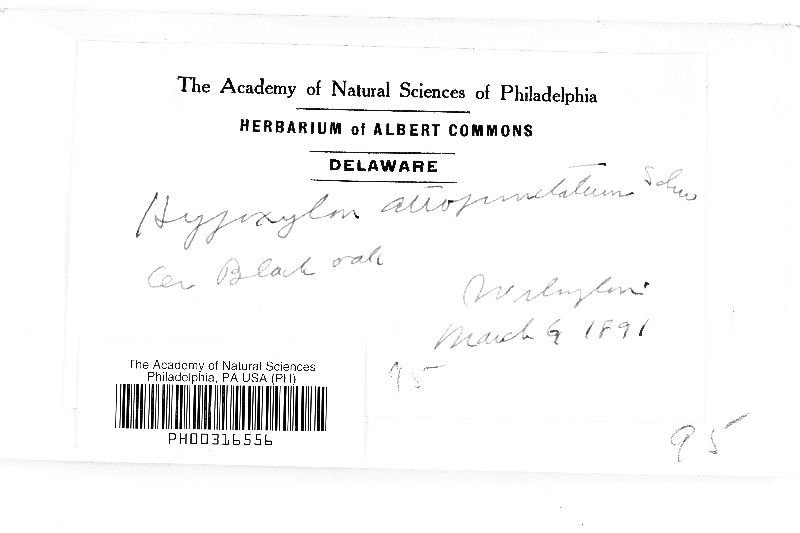 The Academy of Natural Sciences of Philadelphia
HERBARIUM of ALBERT COMMONS
DELAWARE
Hypoxylon atropunctatum Schw
on Black oak
Wilmington
March 9 1891
95
The Academy of Natural Sciences
Philadelphia, PA USA (PH)
PH00316556
95